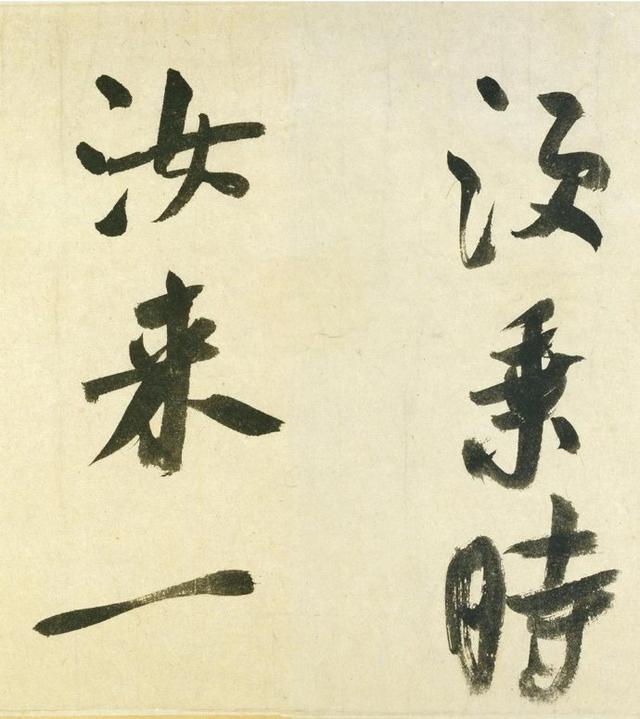 須乘時
汝来一